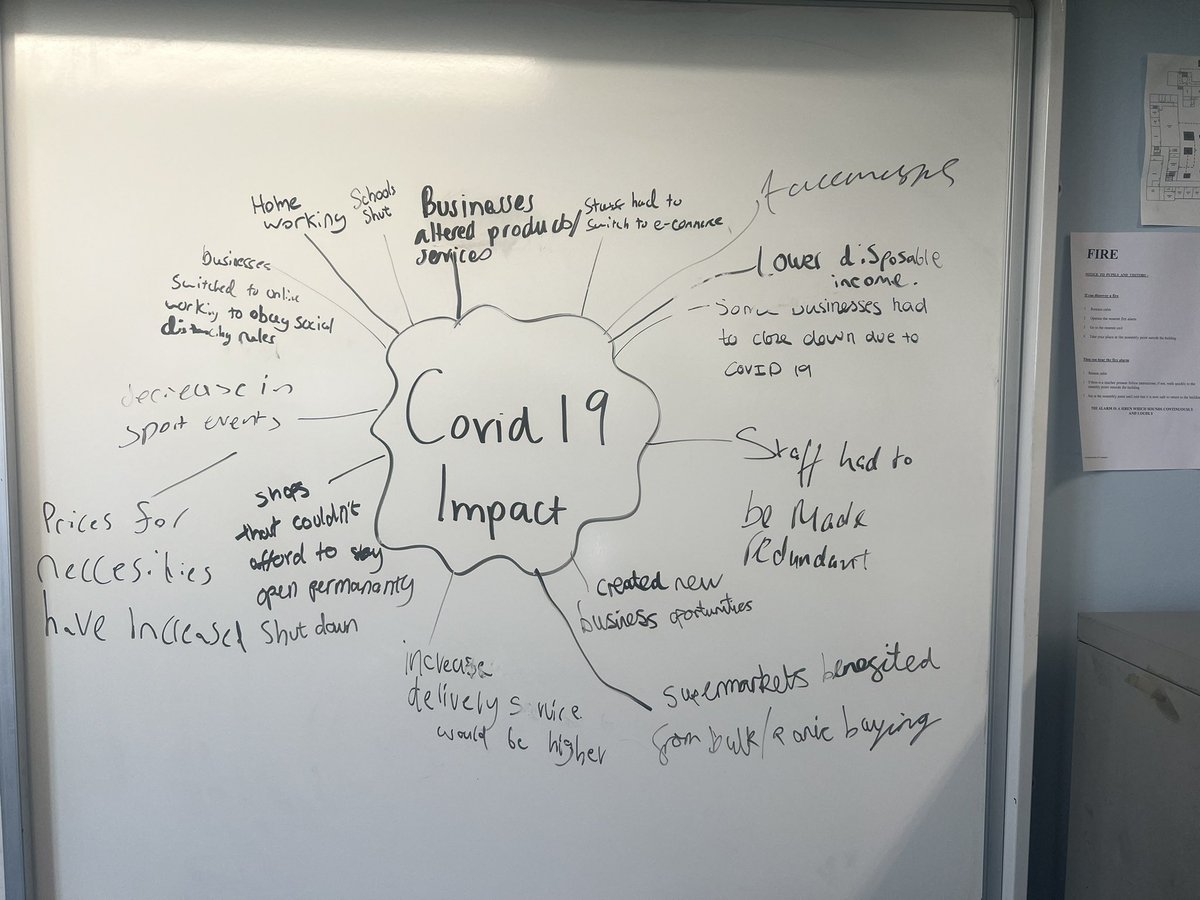 Home
working
Schools
Shut
Businesses
altered products/
services
had to
switch to e-commerce
Lower disposable
income.
Some businesses had
to close down due to
COVID 19
businesses
switched to online
working to obey social
distancing rules
decrease in
sport events
Covid 19
Impact
Staff had to
be Made
redundant
Prices for
neccesities
have Increased
shops
that couldn't
afford to stay
open permanantly
shut down
created new
business oportunities
increase
delivery service
would be higher
supermarkets benefited
from bulk/panic buying
FIRE
NOTICE TO PUPILS AND VISITORS
If you discover a fire
If you hear the fire alarm
THE ALARM IS A SIREN WHICH SOUNDS CONTINUOUSLY
AND LOUDLY